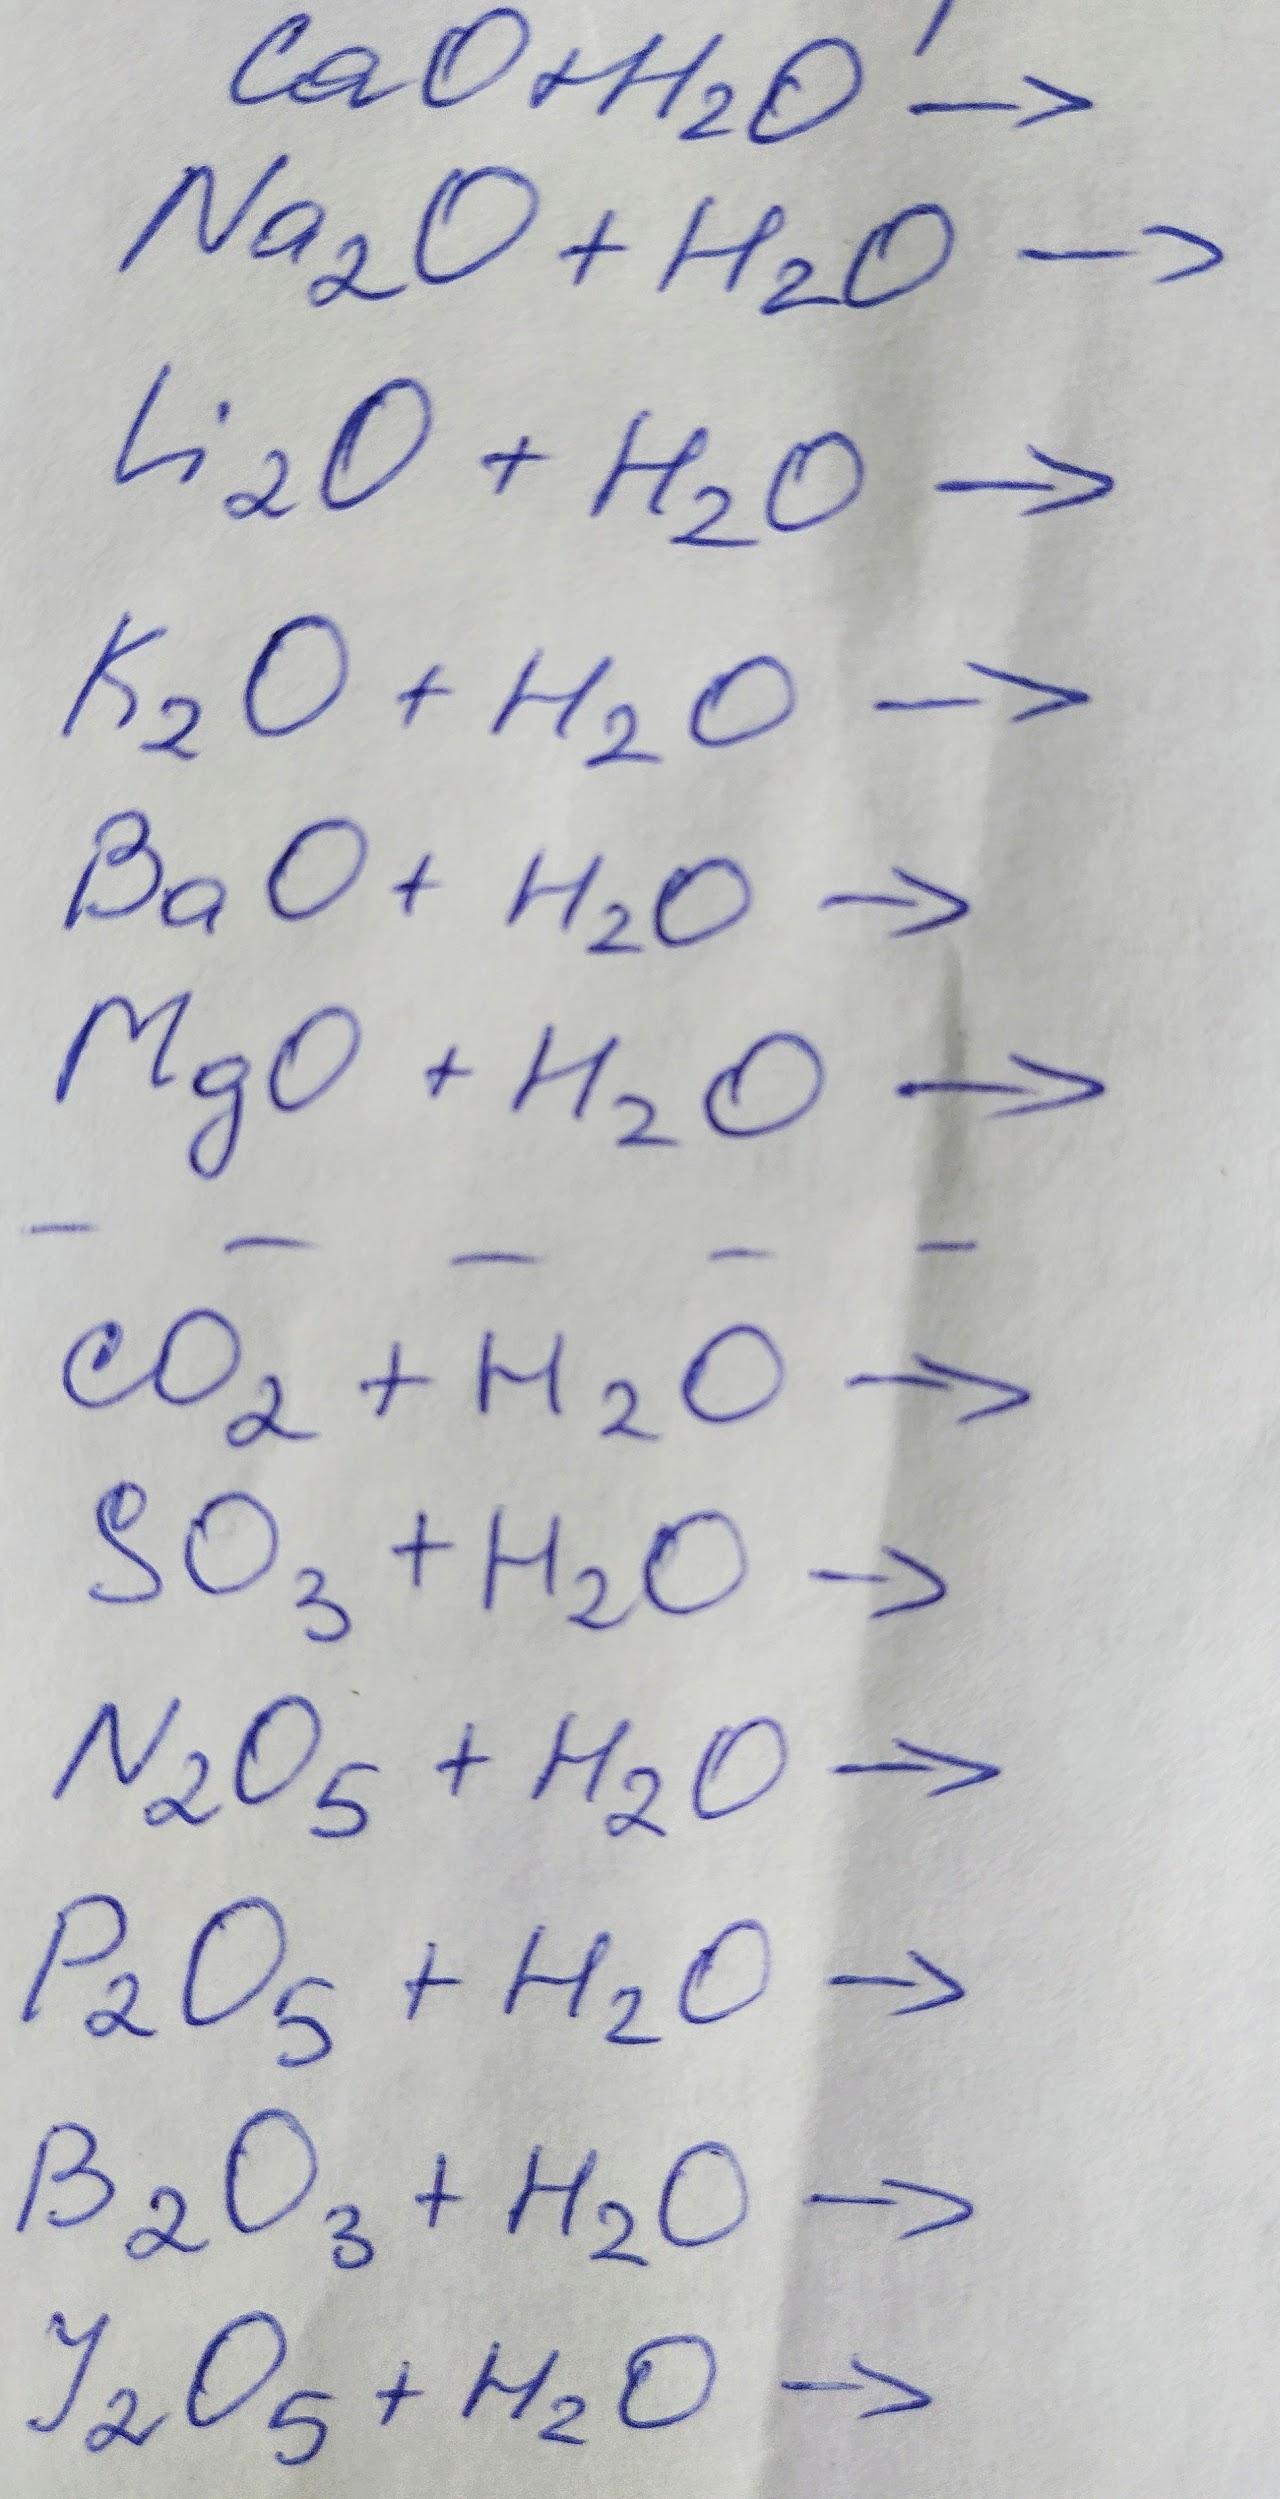 CaO + H₂O →
Na₂O + H₂O →
Li₂O + H₂O →
K₂O + H₂O →
BaO + H₂O →
MgO + H₂O →
– – – – –
CO₂ + H₂O →
SO₃ + H₂O →
N₂O₅ + H₂O →
P₂O₅ + H₂O →
B₂O₃ + H₂O →
J₂O₅ + H₂O →